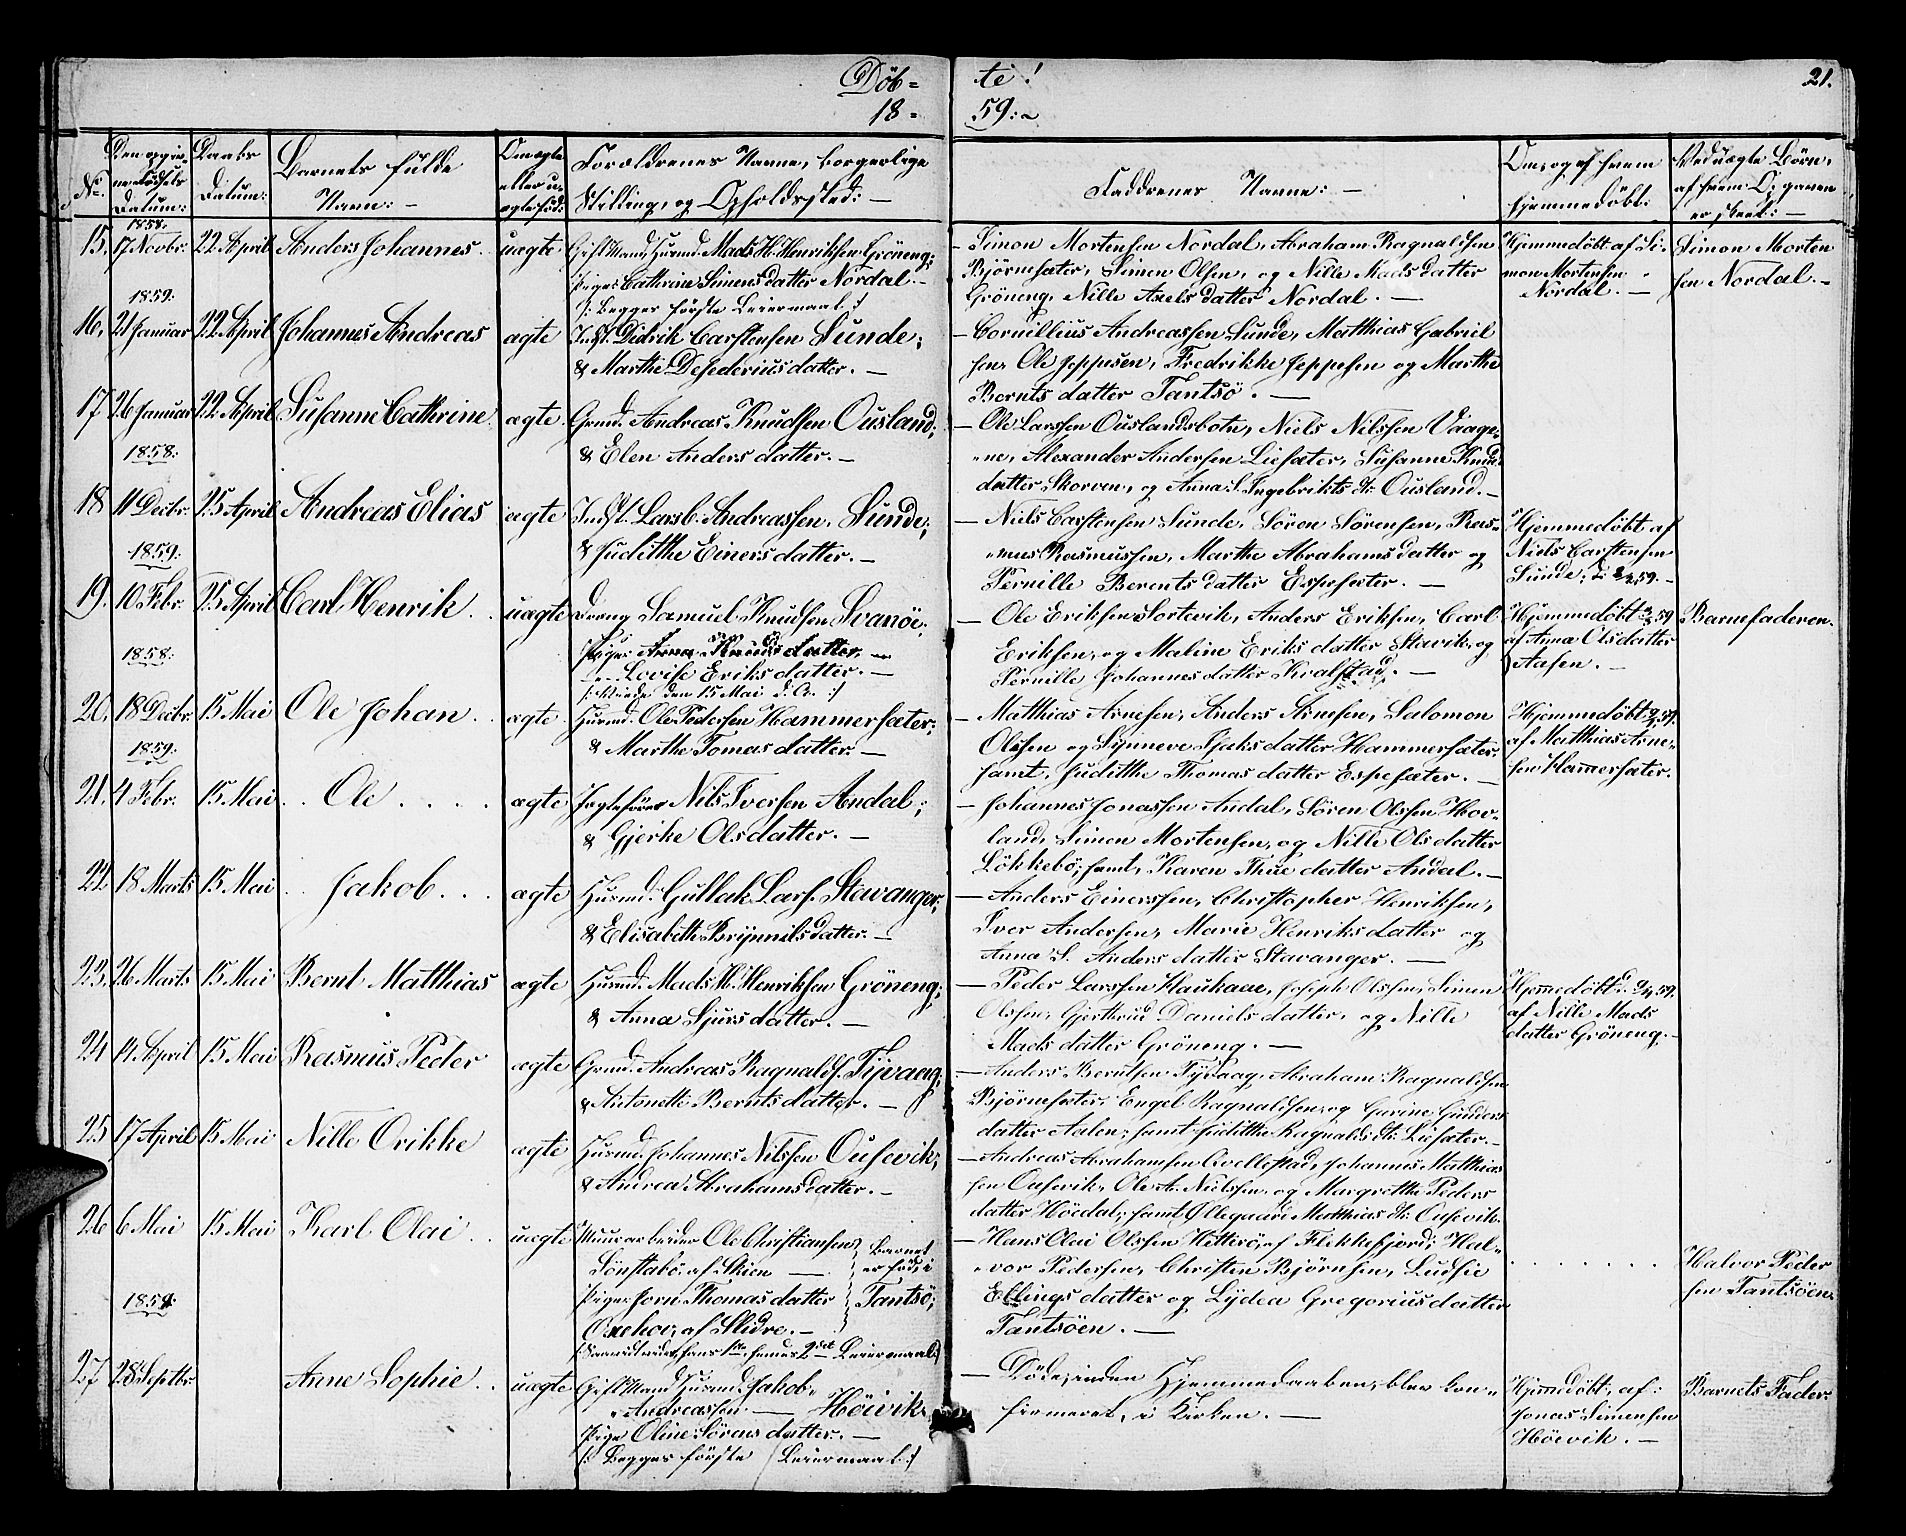 Döb= te!
21.
18= 59:~
No.
Den opgivne Fødsels Datum:
Daabs Datum:
Barnets fulde Navn: -
Om ægte eller uægte fød:
Forældrenes Navne, borgerlige Stilling, og Opholdssted: -
Faddrenes Navne: -
Om, og af hvem hjemmedöbt:
Ved uægte Börn, af hvem Opgaven er skeet: -
1858:
15. 17 Novbr. 22 April Anders Johannes. uægte
Gift Mand, Husmd. Mads H. Henriksen Gröneng;
Pigen Cathrine Simensdatter Nordal. -
/: Begges förste Leiermaal :/
- Simon Mortensen Nordal, Abraham Ragnaldsen
Björnesæter, Simen Olsen, og Nille Madsdatter
Gröneng, Nille Axelsdatter Nordal. -
Hjemmedöbt af Simon Mortensen
Nordal. -
Simon Morten
sen Nordal. -
1859:
16. 21 Januar 22 April Johannes Andreas ægte
Indst. Didrik Carstensen Sunde;
& Marthe Desederiusdatter. -
- Cornillius Andreassen Sunde, Matthias Gabriel
sen, Ole Jeppesen, Fredrikke Jeppesen og Marthe
Berntsdatter Tantsö. -
17 26 Januar 22 April Susanne Cathrine ægte
Grmd. Andreas Knudsen Ousland;
& Elen Andersdatter. -
- Ole Larssen Ouslandsbotn, Niels Nilssen Vaage=
=ne, Alexander Andersen Liesæter, Susanne Knuds
datter Skorven, og Anna S. Ingebrikts dr. Ousland. -
1858:
18 11 Decbr. 25 April Andreas Elias ægte
Indst. Lars b. Andreassen, Sunde;
& Judithe Einersdatter. -
- Niels Carstensen Sunde, Sören Sörensen, Ras=
=mus Rasmussen, Marthe Abrahamsdatter og
Pernille Berentsdatter Espesæter. -
Hjemmedöbt af
Niels Carstensen
Sunde,
1859:
19. 10 Febr. 25 April Carl Henrik. uægte
Dreng Samuel Knudsen Svanöe;
Pige
Lovise Eriksdatter. -
- Ole Eriksen Sortevik, Anders Eriksen, Carl
Eriksen, og Maline Eriksdatter Stavik, og
Pernille Johannesdatter Kvalstad. -
Hjemmedöbt
af Anna Olsdatter
Aasen. -
Barnefaderen.
1858:
20. 18 Decbr. 15 Mai Ole Johan. ægte
Husmd. Ole Pedersen Hammersæter;
& Marthe Tomasdatter. -
- Matthias Arnesen, Anders Arnesen, Salomon
Olssen og Synneve Isaksdatter Hammersæter,
samt, Judithe Thomasdatter Espesæter. -
Hjemmedöbt
af Matthias Arne=
sen Hamersæter.
1859:
21. 4 Febr. 15 Mai .. Ole .... ægte
Jagtefører Nils Iversen Andal;
& Gjerke Olsdatter. -
- Johannes Jonassen Andal, Sören Olssen Hov=
land, Simen Mortensen, og Nille Olsdatter
Lökkebö, samt, Karen Thuedatter Andal. -
22. 18 Marts 15 Mai .. Jakob ... ægte
Husmd. Gullak Lars. Stavanger;
& Elisabethe Brynnilsdatter. -
- Anders Einerssen, Christopher Henriksen,
Iver Andersen, Marie Henriksdatter og
Anna S. Andersdatter Stavanger. -
23. 26 Marts 15 Mai Bernt Matthias ægte
Husmd. Mads H. Henriksen Gröneng;
& Anna Sjursdatter. -
- Peder Larssen Haukaae, Joseph Olssen, Simen
Olssen, Gjerthrud Danielsdatter, og Nille
Madsdatter Gröneng. -
Hjemmedöbt
af Nille Mads
datter Gröneng. -
24 14 April 15 Mai Rasmus Peder ægte
Grmd. Andreas Ragnalds. Tyvaag;
& Antonette Berntsdatter. -
- Anders Berntsen Tyvaag, Abraham Ragnaldsen
Björnesæter, Engel Ragnaldsen, og Gurine Gunders
datter Aalen; samt Judithe Ragnalds dr. Liesæter. -
25 17 April 15 Mai Nille Orikke ægte
Husmd. Johannes Nilssen Ousevik;
& Andrea Abrahamsdatter. -
- Andreas Abrahamsen Qvellestad, Johannes Matthias
sen Ousevik, Ole A. Nielsen, og Margrethe Peders
datter Höedal, samt Øllegaard Matthias dr. Ousevik.
26 6 Mai 15 Mai Karl Olai .. uægte
Muurarbeider Ole Christiansen
Sönstabö, af Skien -
Pigen Jorn Thomasdatter
af Slidre. -
Barnet er fød, i Tantsö;
- Hans Olai Olssen Hitterö, af Flekkefjord; Hal=
=vor Pedersen, Christen Björnsen, Ludsie
Ellingsdatter og Lydea Gregoriusdatter
Tantsöen. -
Halvor Peder
sen Tantsöen.
1859:
27 28 Septbr. Anne Sophie .. uægte
Gift Mand, Husmd. Jakob
Andreassen - Höivik,
Pige Oline Sörensdatter. -
/: Begges förste Leiermaal :/
- Döde, inden Hjemmedaaben, blev kon=
firmeret, i Kirken. -
Hjemdöbt, af:
Jonas Simensen
Höevik. -
Barnets Fader.